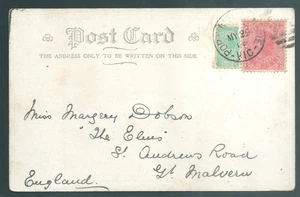 Post Card
THE ADDRESS ONLY TO BE WRITTEN ON THIS SIDE.
MY 25
Miss Margery Dobson
"The Elms"
St. Andrews Road
Gt. Malvern
England.